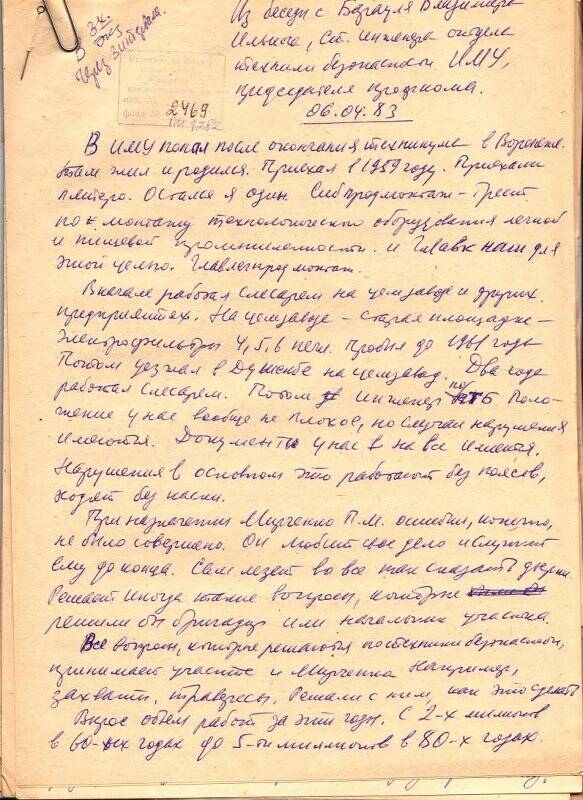 В 3х.
экз
Через
2469
Из беседы с Владимира
Ильича, Ст. инженера отдела
техники безопасности ИМУ,
председателя профкома.
06.04.83
В ИМУ попал после окончания техникума в Воронеже.
Там жил и родился. Приехал в 1959 году. Приехали
пятеро. Остался я один. Сибпродмонтаж - Трест
по монтажу технологического оборудования легкой
и пищевой промышленности. и Главк наш для
этой цели. Главлегпродмонтаж.
Вначале работал слесарем на цемзаводе и других
предприятиях. На цемзаводе - старая площадка -
электрофильтры 4, 5, 6 печи. Пробыл до 1961 года
Потом уезжал в Душанбе на цемзавод. Два года
работал слесарем. Потом инженер по ТБ Поло-
жение у нас вообще не плохое, но случаи нарушения
имеются. Документы у нас на все имеются.
Нарушения в основном это работают без поясов,
ходят без каски.
При назначении Мирченко П.М. ошибки, конечно,
не было совершено. Он любит свое дело и служит
ему до конца. Сам лезет во все так сказать дырки.
Решает иногда такие вопросы, которые
решили бы бригадир или начальник участка.
Все вопросы, которые решаются по технике безопасности,
принимает участие и Мирченко Например,
захваты, траверсы. Решали с ним, как это сделать
Вырос объем работ за эти годы. С 2-х миллионов
в 60-ых годах до 5-ти миллионов в 80-х годах.